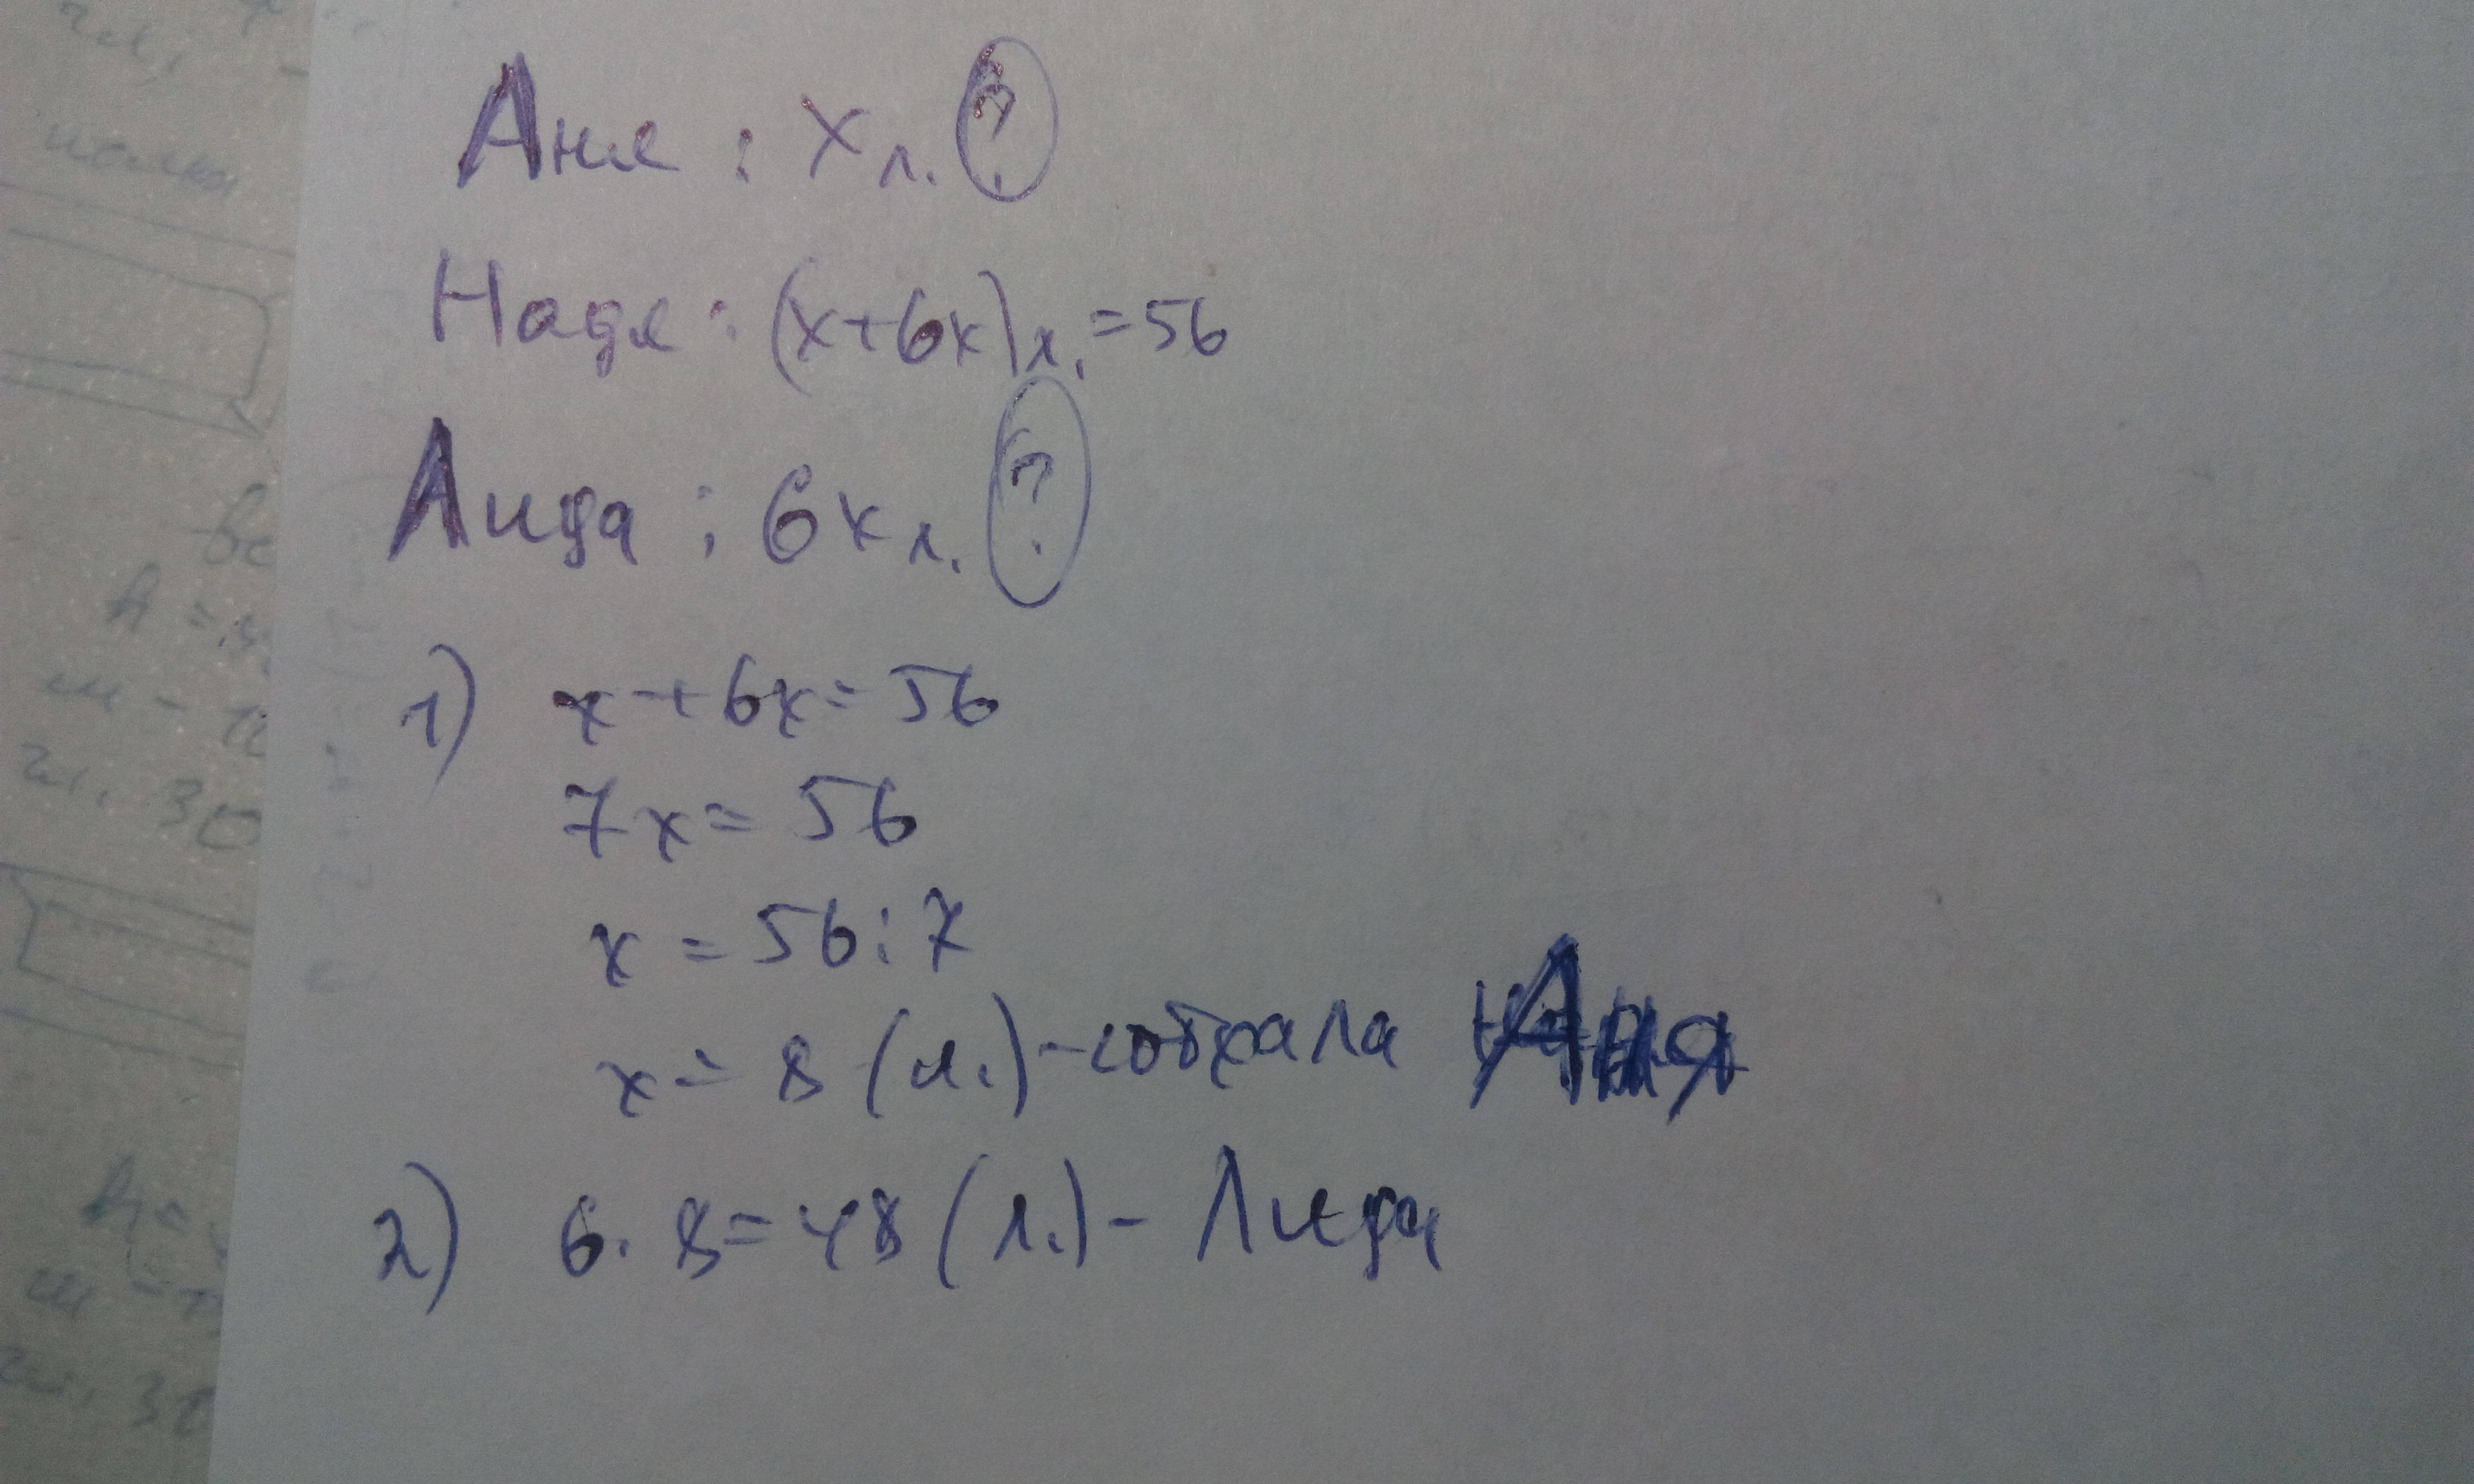 Аня : х л. ?
Надя : (х+6х)л. =56
Лида : 6х л. ?
1) х+6х=56
7х=56
х=56:7
х=8 (л.)-собрала Аня
2) 6·8=48 (л.)- Лида